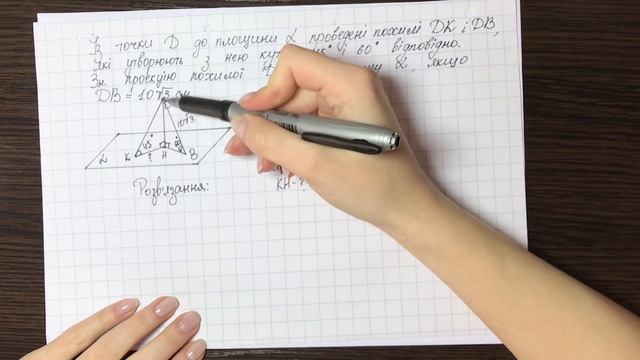 З точки D до площини α проведені похилі DK і DB,
які утворюють з нею 45° і 60° відповідно.
Зн. проєкцію похилої α, якщо
DB = 10√3 см
10√3
45°
α K ? H B
Розв'язання:
KH - ?